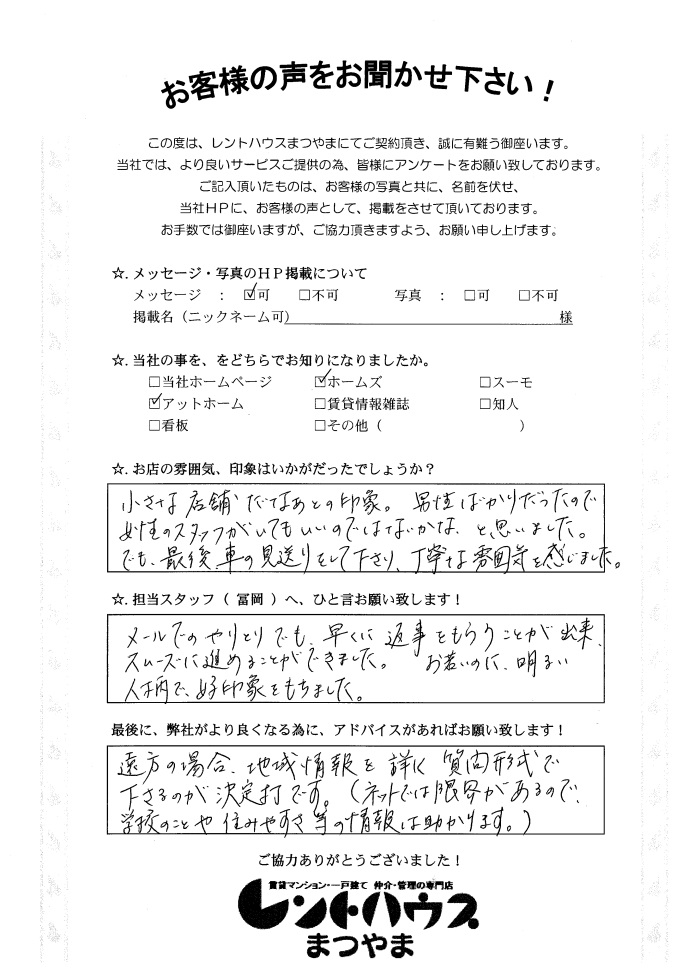 お客様の声をお聞かせ下さい！
この度は、レントハウスまつやまにてご契約頂き、誠に有難う御座います。
当社では、より良いサービスご提供の為、皆様にアンケートをお願い致しております。
ご記入頂いたものは、お客様の写真と共に、名前を伏せ、
当社ＨＰに、お客様の声として、掲載をさせて頂いております。
お手数では御座いますが、ご協力頂きますよう、お願い申し上げます。
☆. メッセージ・写真のＨＰ掲載について
メッセージ ： ☑可 □不可 写真 ： □可 □不可
掲載名（ニックネーム可） 様
☆. 当社の事を、をどちらでお知りになりましたか。
□当社ホームページ ☑ホームズ □スーモ
☑アットホーム □賃貸情報雑誌 □知人
□看板 □その他（ ）
☆. お店の雰囲気、印象はいかがだったでしょうか？
小さな店舗だなあとの印象。男性ばかりだったので
女性のスタッフがいてもいいのではないかな、と思いました。
でも、最後、車の見送りをして下さり、丁寧な雰囲気を感じました。
☆. 担当スタッフ（ 冨岡 ）へ、ひと言お願い致します！
メールでのやりとりでも、早くに返事をもらうことが出来、
スムーズに進めることができました。 お若いのに、明るい
人柄で、好印象をもちました。
最後に、弊社がより良くなる為に、アドバイスがあればお願い致します！
遠方の場合、地域情報を詳しく質問形式で
下さるのが決定打です。（ネットでは限界があるので、
学校のことや住みやすさ等の情報は助かります。）
ご協力ありがとうございました！
賃貸マンション・一戸建て 仲介・管理の専門店
レントハウス
まつやま